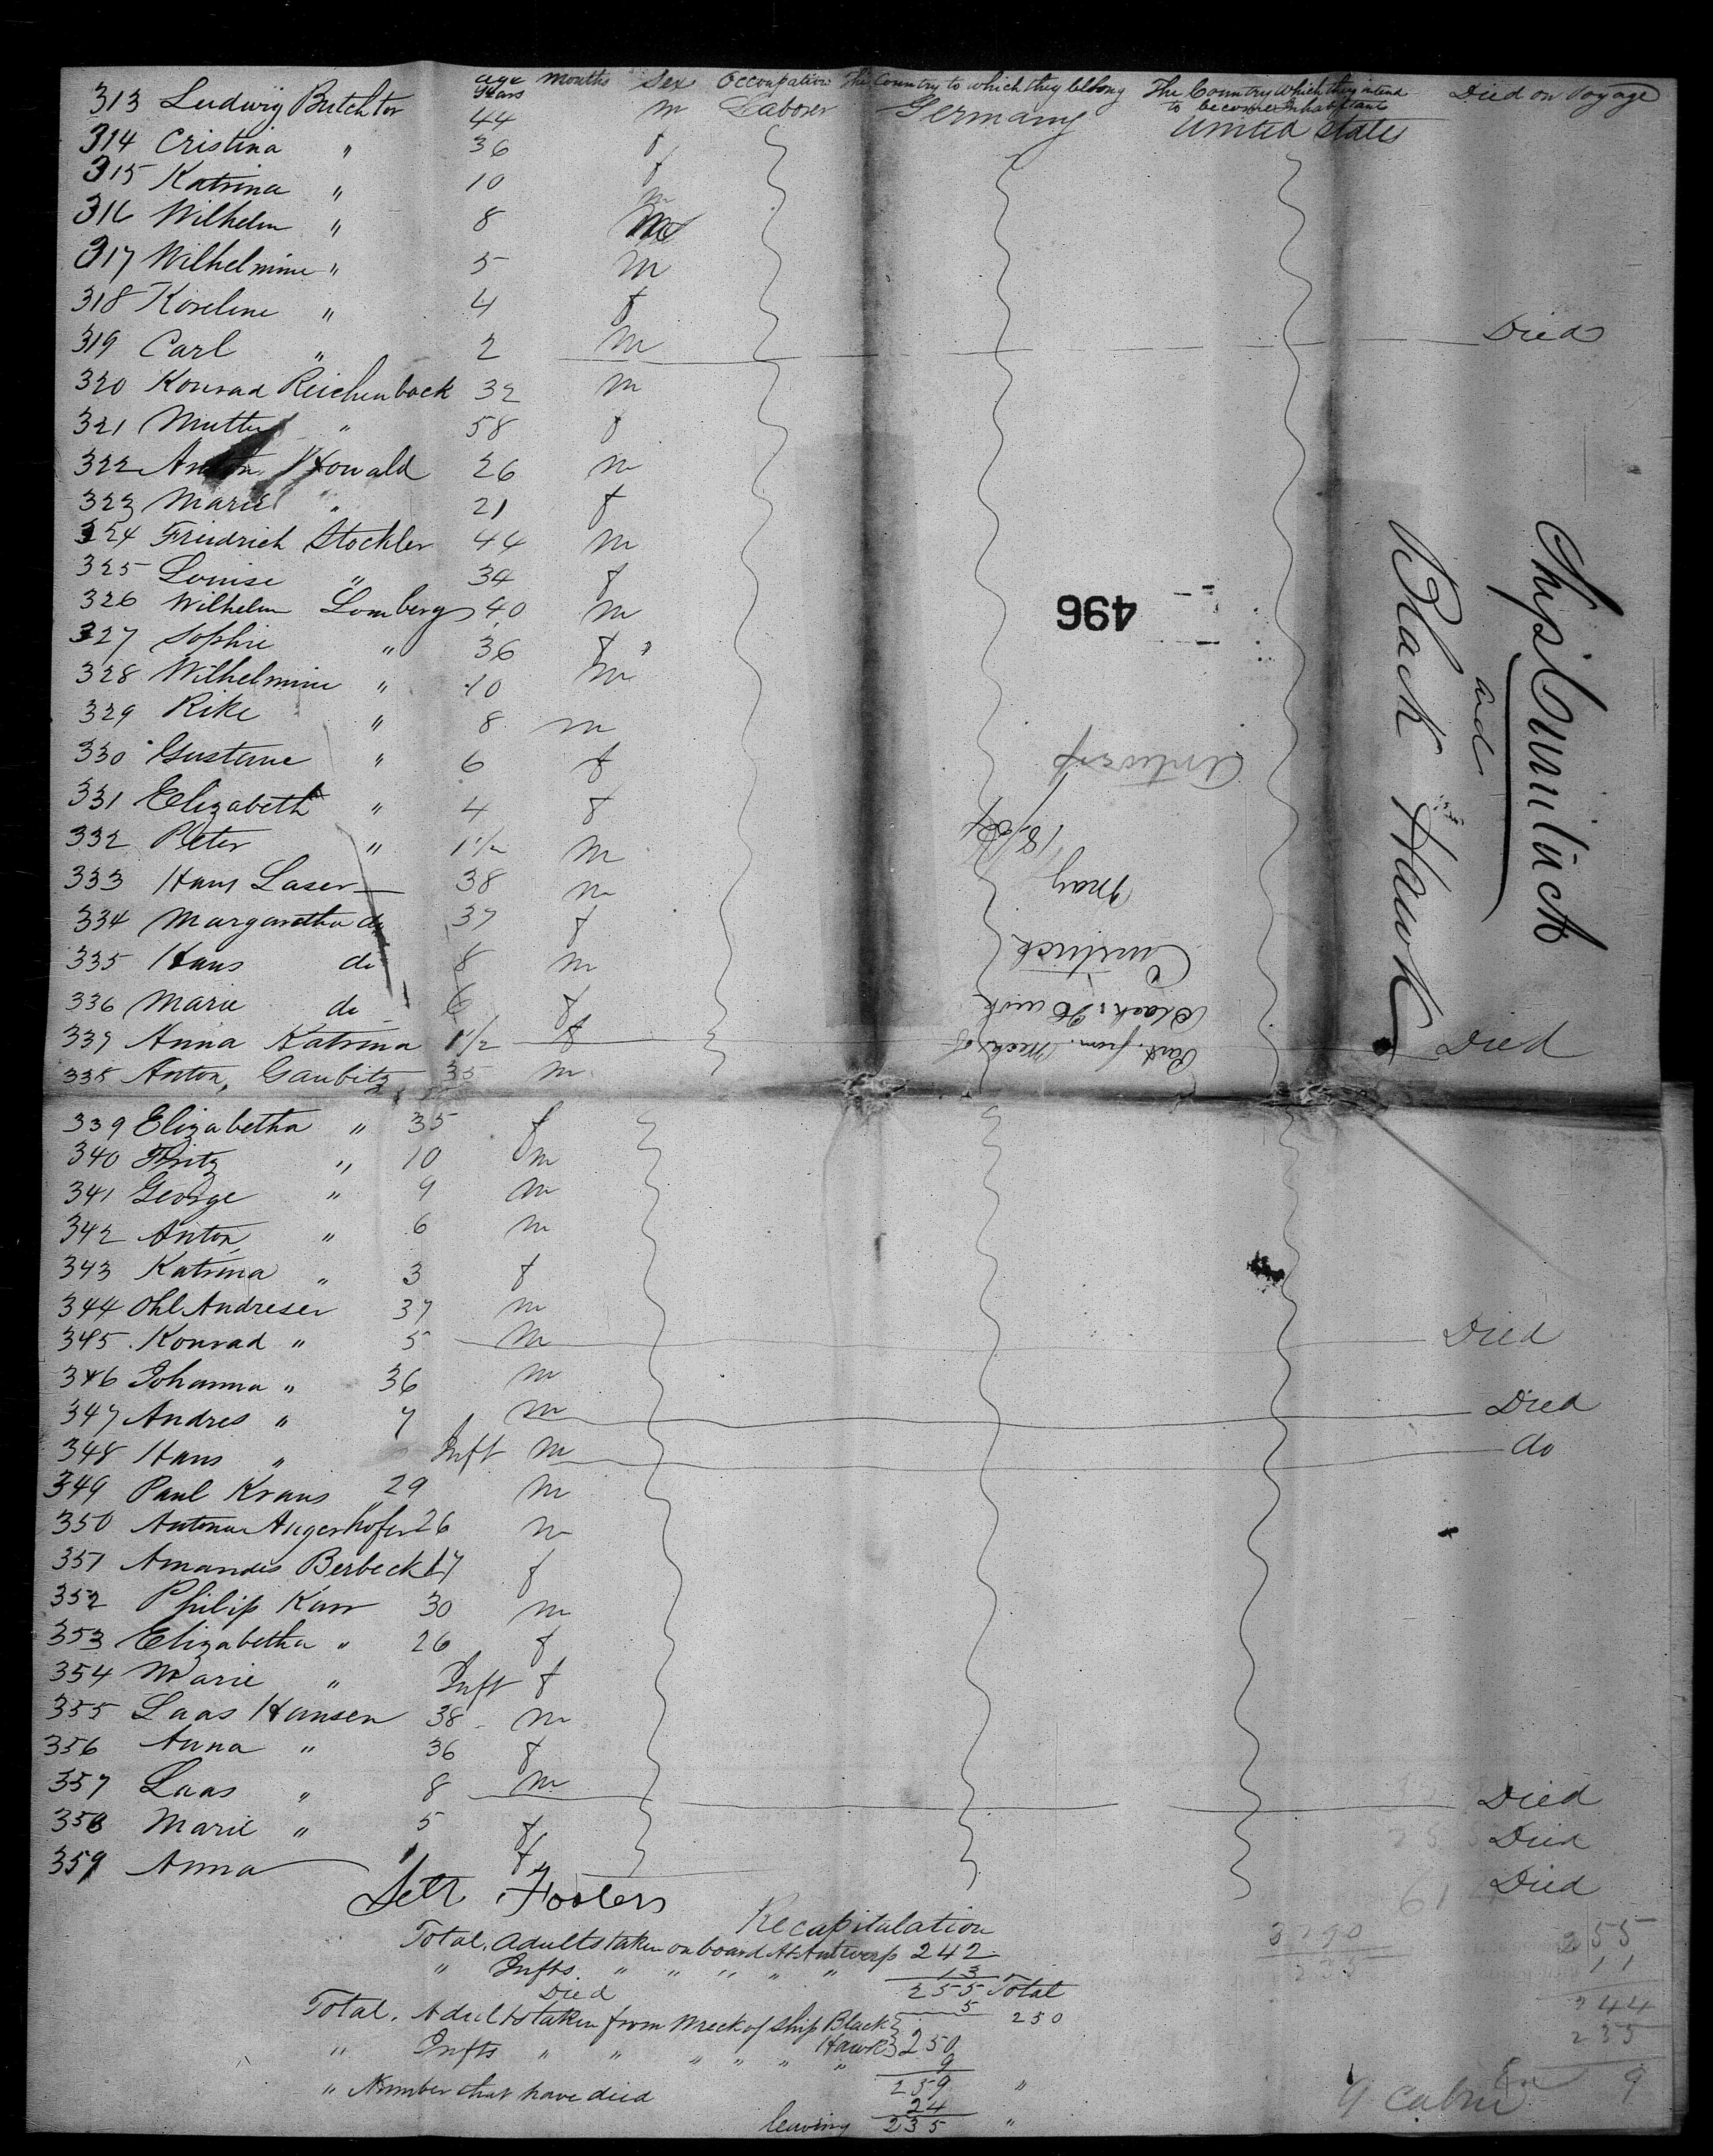 age years months Sex Occupation The Country to which they belong The Country which they intend to become Inhabitants Died on Voyage
313 Ludwig Butchter 44 m Laborer Germany United States
314 Cristina " 36 f
315 Katrina " 10 f
316 Wilhelm " 8 m
317 Wilhelmine " 5 m
318 Koreline " 4 f
319 Carl " 2 m Died
320 Konrad Reichenback 32 m
321 Mutter " 58 f
322 Anton Howald 26 m
323 Marie " 21 f
324 Friedrich Stockler 44 m
325 Louise " 34 f
326 Wilhelm Lomberg 40 m
327 Sophie " 36 f
328 Wilhelmine " 10 m
329 Rike " 8 m
330 Gustave " 6 f
331 Elizabeth " 4 f
332 Peter " 1 1/2 m
333 Hans Laser 38 m
334 Margaretha do 37 f
335 Hans do 8 m
336 Marie do 6 f
337 Anna Katrina 1 1/2 f Died
338 Anton, Gaubitz 35 m
339 Elizabetha " 35 f
340 Fritz " 10 m
341 George " 9 m
342 Anton " 6 m
343 Katrina " 3 f
344 Ohl Andresen 37 m
345 Konrad " 5 m Died
346 Johanna " 36 m
347 Andres " 7 m Died
348 Hans " Inft m do
349 Paul Kraus 29 m
350 Antona Augerhofer 26 m
351 Amandis Berbeck 17 f
352 Philip Karr 30 m
353 Elizabetha " 26 f
354 Marie " Inft f
355 Laas Hansen 38 m
356 Anna " 36 f
357 Laas " 8 m Died
358 Marie " 5 f Died
359 Anna 1 f Died
Seth Fosters
Recapitulation
Total. Adults taken on board At Antwerp 242
" Infts. " " " " " 13
255 Total
Died 5 250
Total. Adults taken from Wreck of Ship Black Hawk 250
" Infts " " " " " " 9
259 "
" Number that have died 24
leaving 235 "
Ship Currituck
and
Black Hawk
496
Antwerp
1854
May
Currituck
Black Hawk
Part from Wreck of
3190
235
255
11
244
235
9
9 Cabin